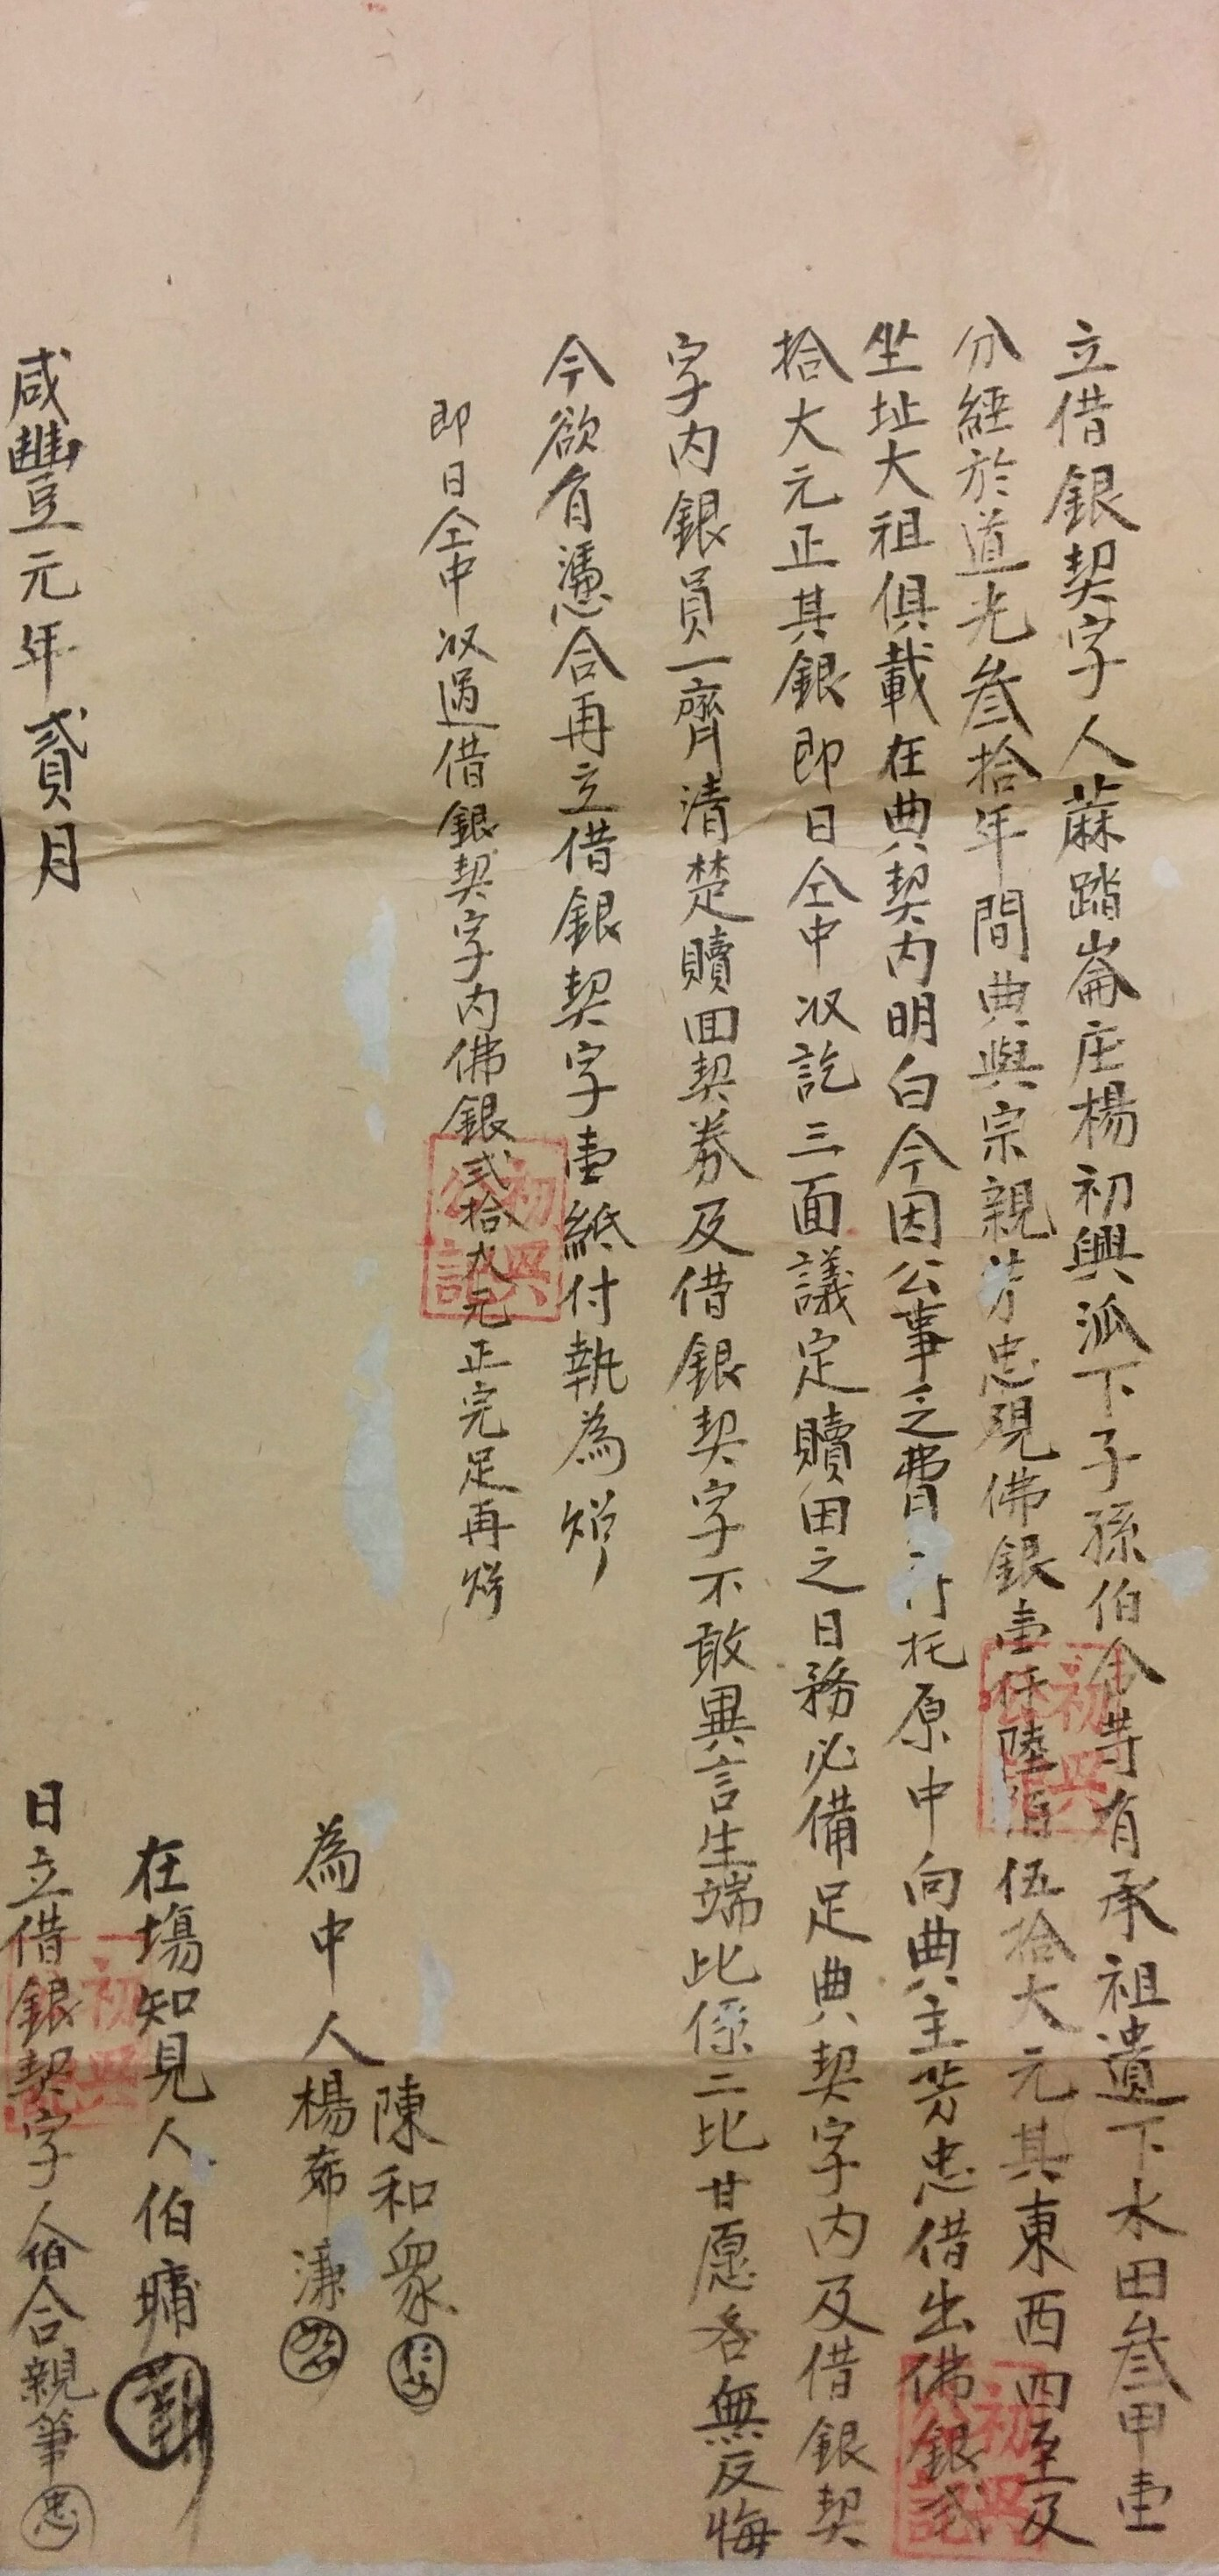 立借銀契字人蔴踏崙庄楊初興派下子孫伯合等有承祖遺下水田叁甲壹
分經於道光叁拾年間典與宗親芳忠現佛銀壹仟陸佰伍拾大元其東西四至及
坐址大祖俱載在典契内明白今因公事乏費托原中向典主芳忠借出佛銀弍
拾大元正其銀即日仝中收訖三面議定贖田之日務必備足典契字内及借銀契
字内銀員一齊清楚贖回契券及借銀契字不敢異言生端此係二比甘愿各無反悔
今欲有憑合再立借銀契字壹紙付執為炤
即日仝中收過借銀契字内佛銀弍拾大元正完足再炤
陳和衆
為中人楊
在塲知見人伯
咸豐元年貳月
日立借銀契字人伯合親筆忠
初興公記
初興公記
初興公記
初興公記